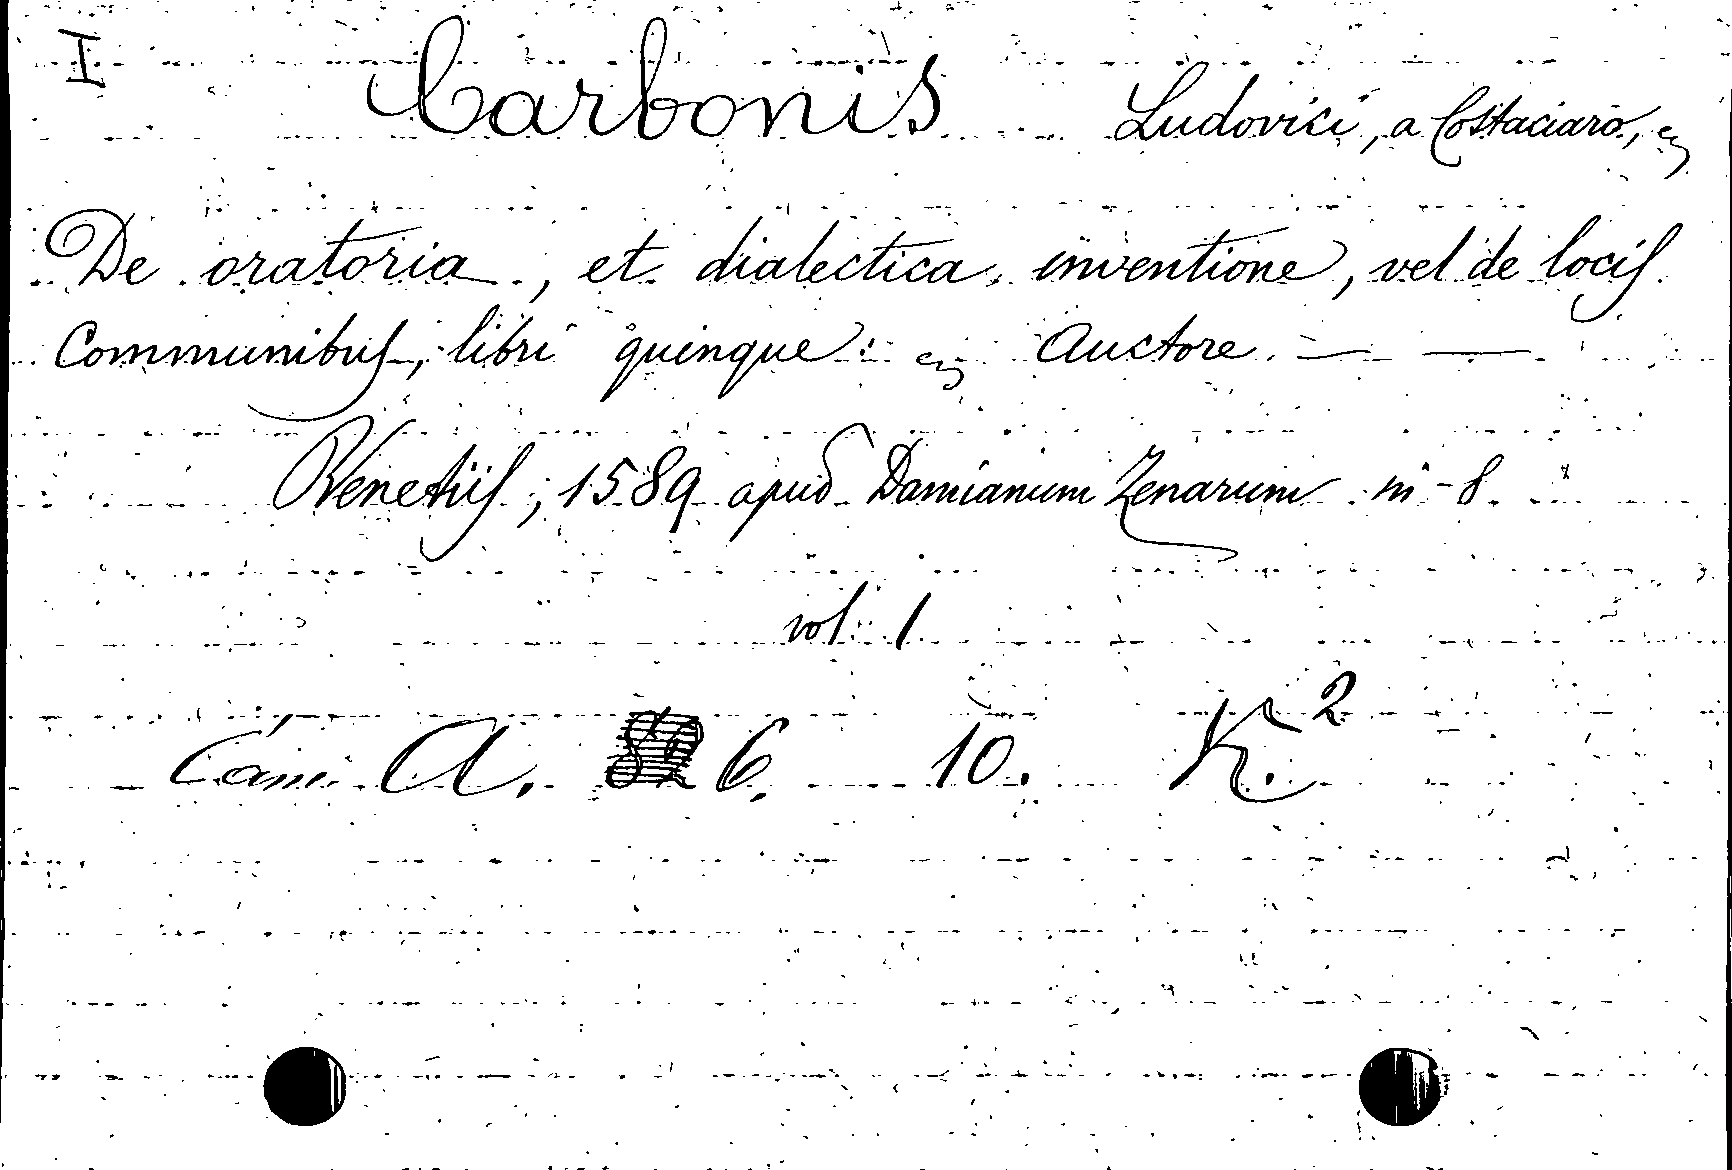 I Carbonis Ludovici, a Costaciaro,
De oratoria, et dialectica inventione, vel de locis
communibus, libri quinque: Auctore — —
Venetiis, 1589 apud Damianum Zenarum in-8.
vol. 1
Cam. A. 6. 10. K.2